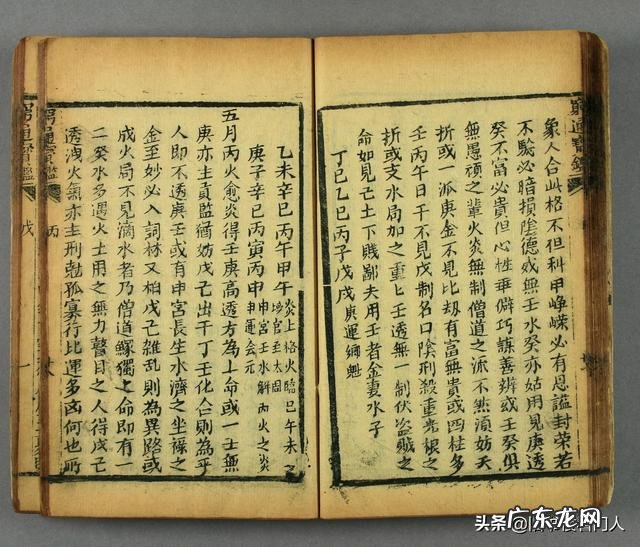 窮通寶鑑
象人合此格不但科甲崢嶸必有恩謐封荣若
不驗必暗損陰德或無壬水癸亦姑用見庚透
癸不富必貴但心性乖僻巧謀善辨或壬癸俱
無愚頑之輩火炎無制僧道之派不然須妨夭
折或一派庚金不見比刼有富無貴或四柱多
壬丙午日干不見戊制名口陰刑殺重光根之
折或支水局加之重匕壬透無一制伏盜賊之
命如見己土下賤鄙夫用壬者金妻水子
丁巳乙巳丙子戊戌庚運鄉魁
乙未辛巳丙午甲午
炎上格火臨巳午未之
官至太
庚子辛巳丙寅丙申
申宮壬水解丙火之炎
申運会元
五月丙火愈炎得壬庚高透方為上命或一壬無
庚亦主貢監犹妨戊己出干丁壬化合則為平
人即不透庚壬或有申宮長生水濟之坐祿之
金至妙必入詞林又怕戊己雑乱則為異路或
成火局不見滴水者乃僧道鰥獨之命即有一
二癸水多遇火土用之無力瞽目之人得戊己
透洩火氣亦主刑尅孤寡行比運多凶何也所
窮通寶鑑
丙
窮通寶鑑
戊
一
头条
广东龙网